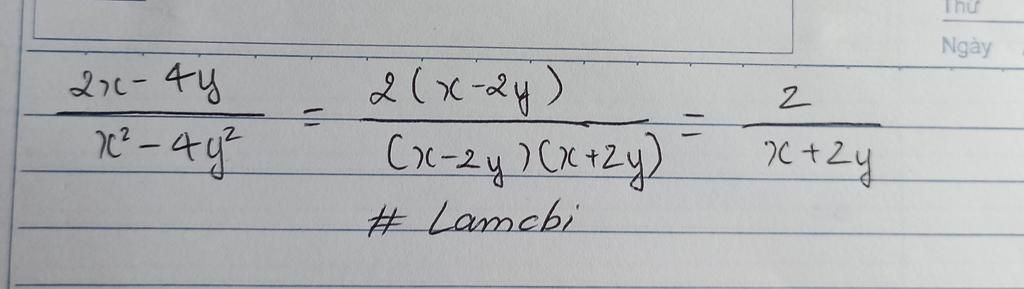 Thứ
Ngày
(2x - 4y)/(x² - 4y²) = (2(x - 2y))/((x - 2y)(x + 2y)) = 2/(x + 2y)
# Lamcbi